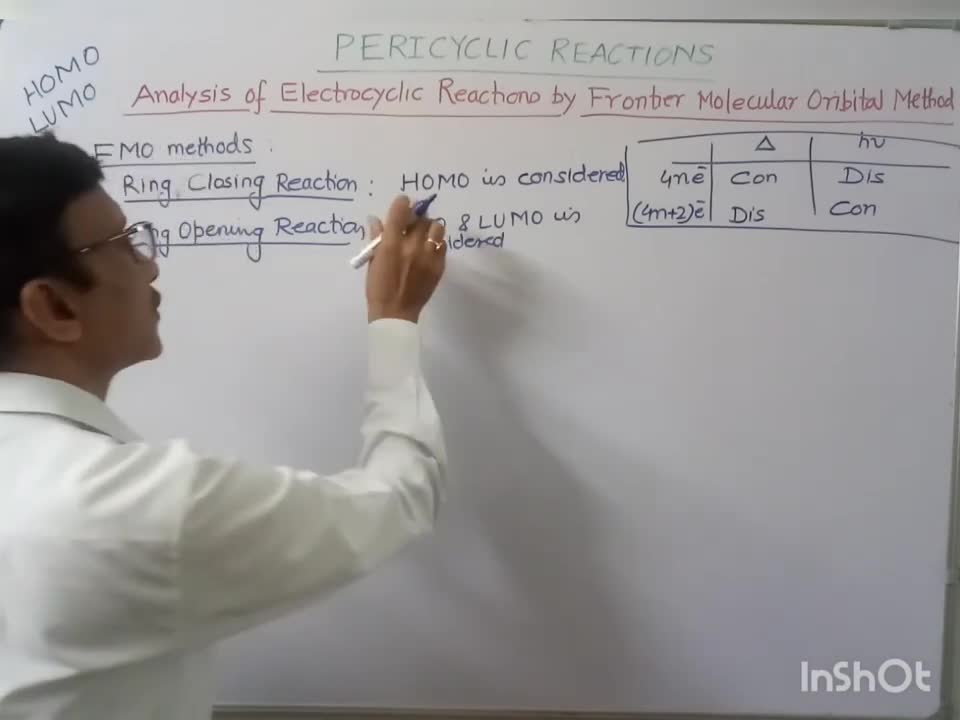 PERICYCLIC REACTIONS
HOMO
LUMO
Analysis of Electrocyclic Reactions by Frontier Molecular Oribital Method
FMO methods :
Ring Closing Reaction : HOMO is considered
Opening Reaction & LUMO is
Δ hν
4nē Con Dis
(4n+2)ē Dis Con
InShOt